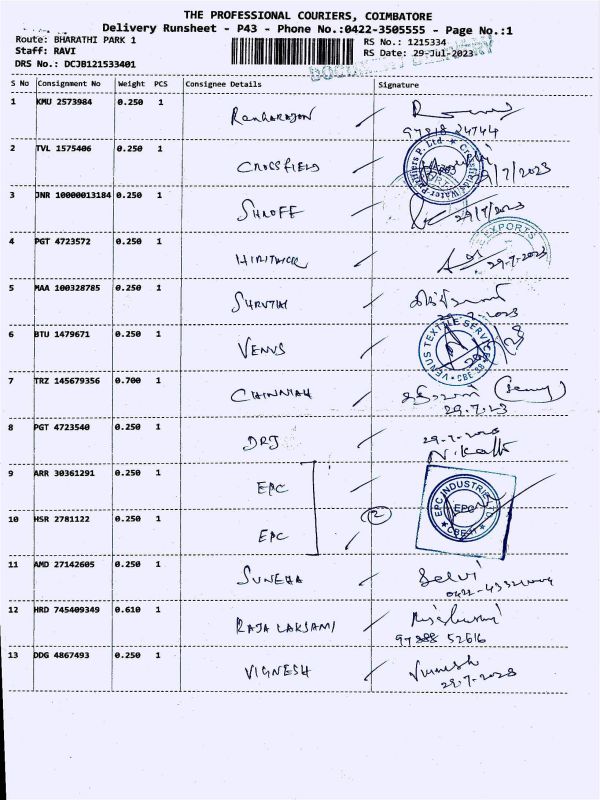 THE PROFESSIONAL COURIERS, COIMBATORE
Delivery Runsheet - P43 - Phone No.:0422-3505555 - Page No.:1
Route: BHARATHI PARK 1
RS No.: 1215334
Staff: RAVI
RS Date: 29-Jul-2023
DRS No.: DCJB121533401
DOCUMENT DELIVERY
S No Consignment No Weight PCS Consignee Details Signature
1 KMU 2573984 0.250 1
2 TVL 1575406 0.250 1 CROSSFIELD
Crossfield Water Purifiers P. Ltd
29/7/2023
3 JNR 10000013184 0.250 1 SHROFF 29/7/2023
EXPORTS
4 PGT 4723572 0.250 1 29.7.2023
5 MAA 100328785 0.250 1 SHRUTHI
6 BTU 1479671 0.250 1 VENUS
VENUS TEXTILE SERVICE
7 TRZ 145679356 0.700 1 CHINNIAH
29.7.23
8 PGT 4723540 0.250 1 DRJ
9 ARR 30361291 0.250 1 EPC
EPC INDUSTRIES
EPC
10 HSR 2781122 0.250 1 EPC 2
11 AMD 27142605 0.250 1 SUNEHA Selvi
12 HRD 745409349 0.610 1 RAJALAKSAMI
97888 52616
13 DDG 4867493 0.250 1 VIGNESH
29.7.2023